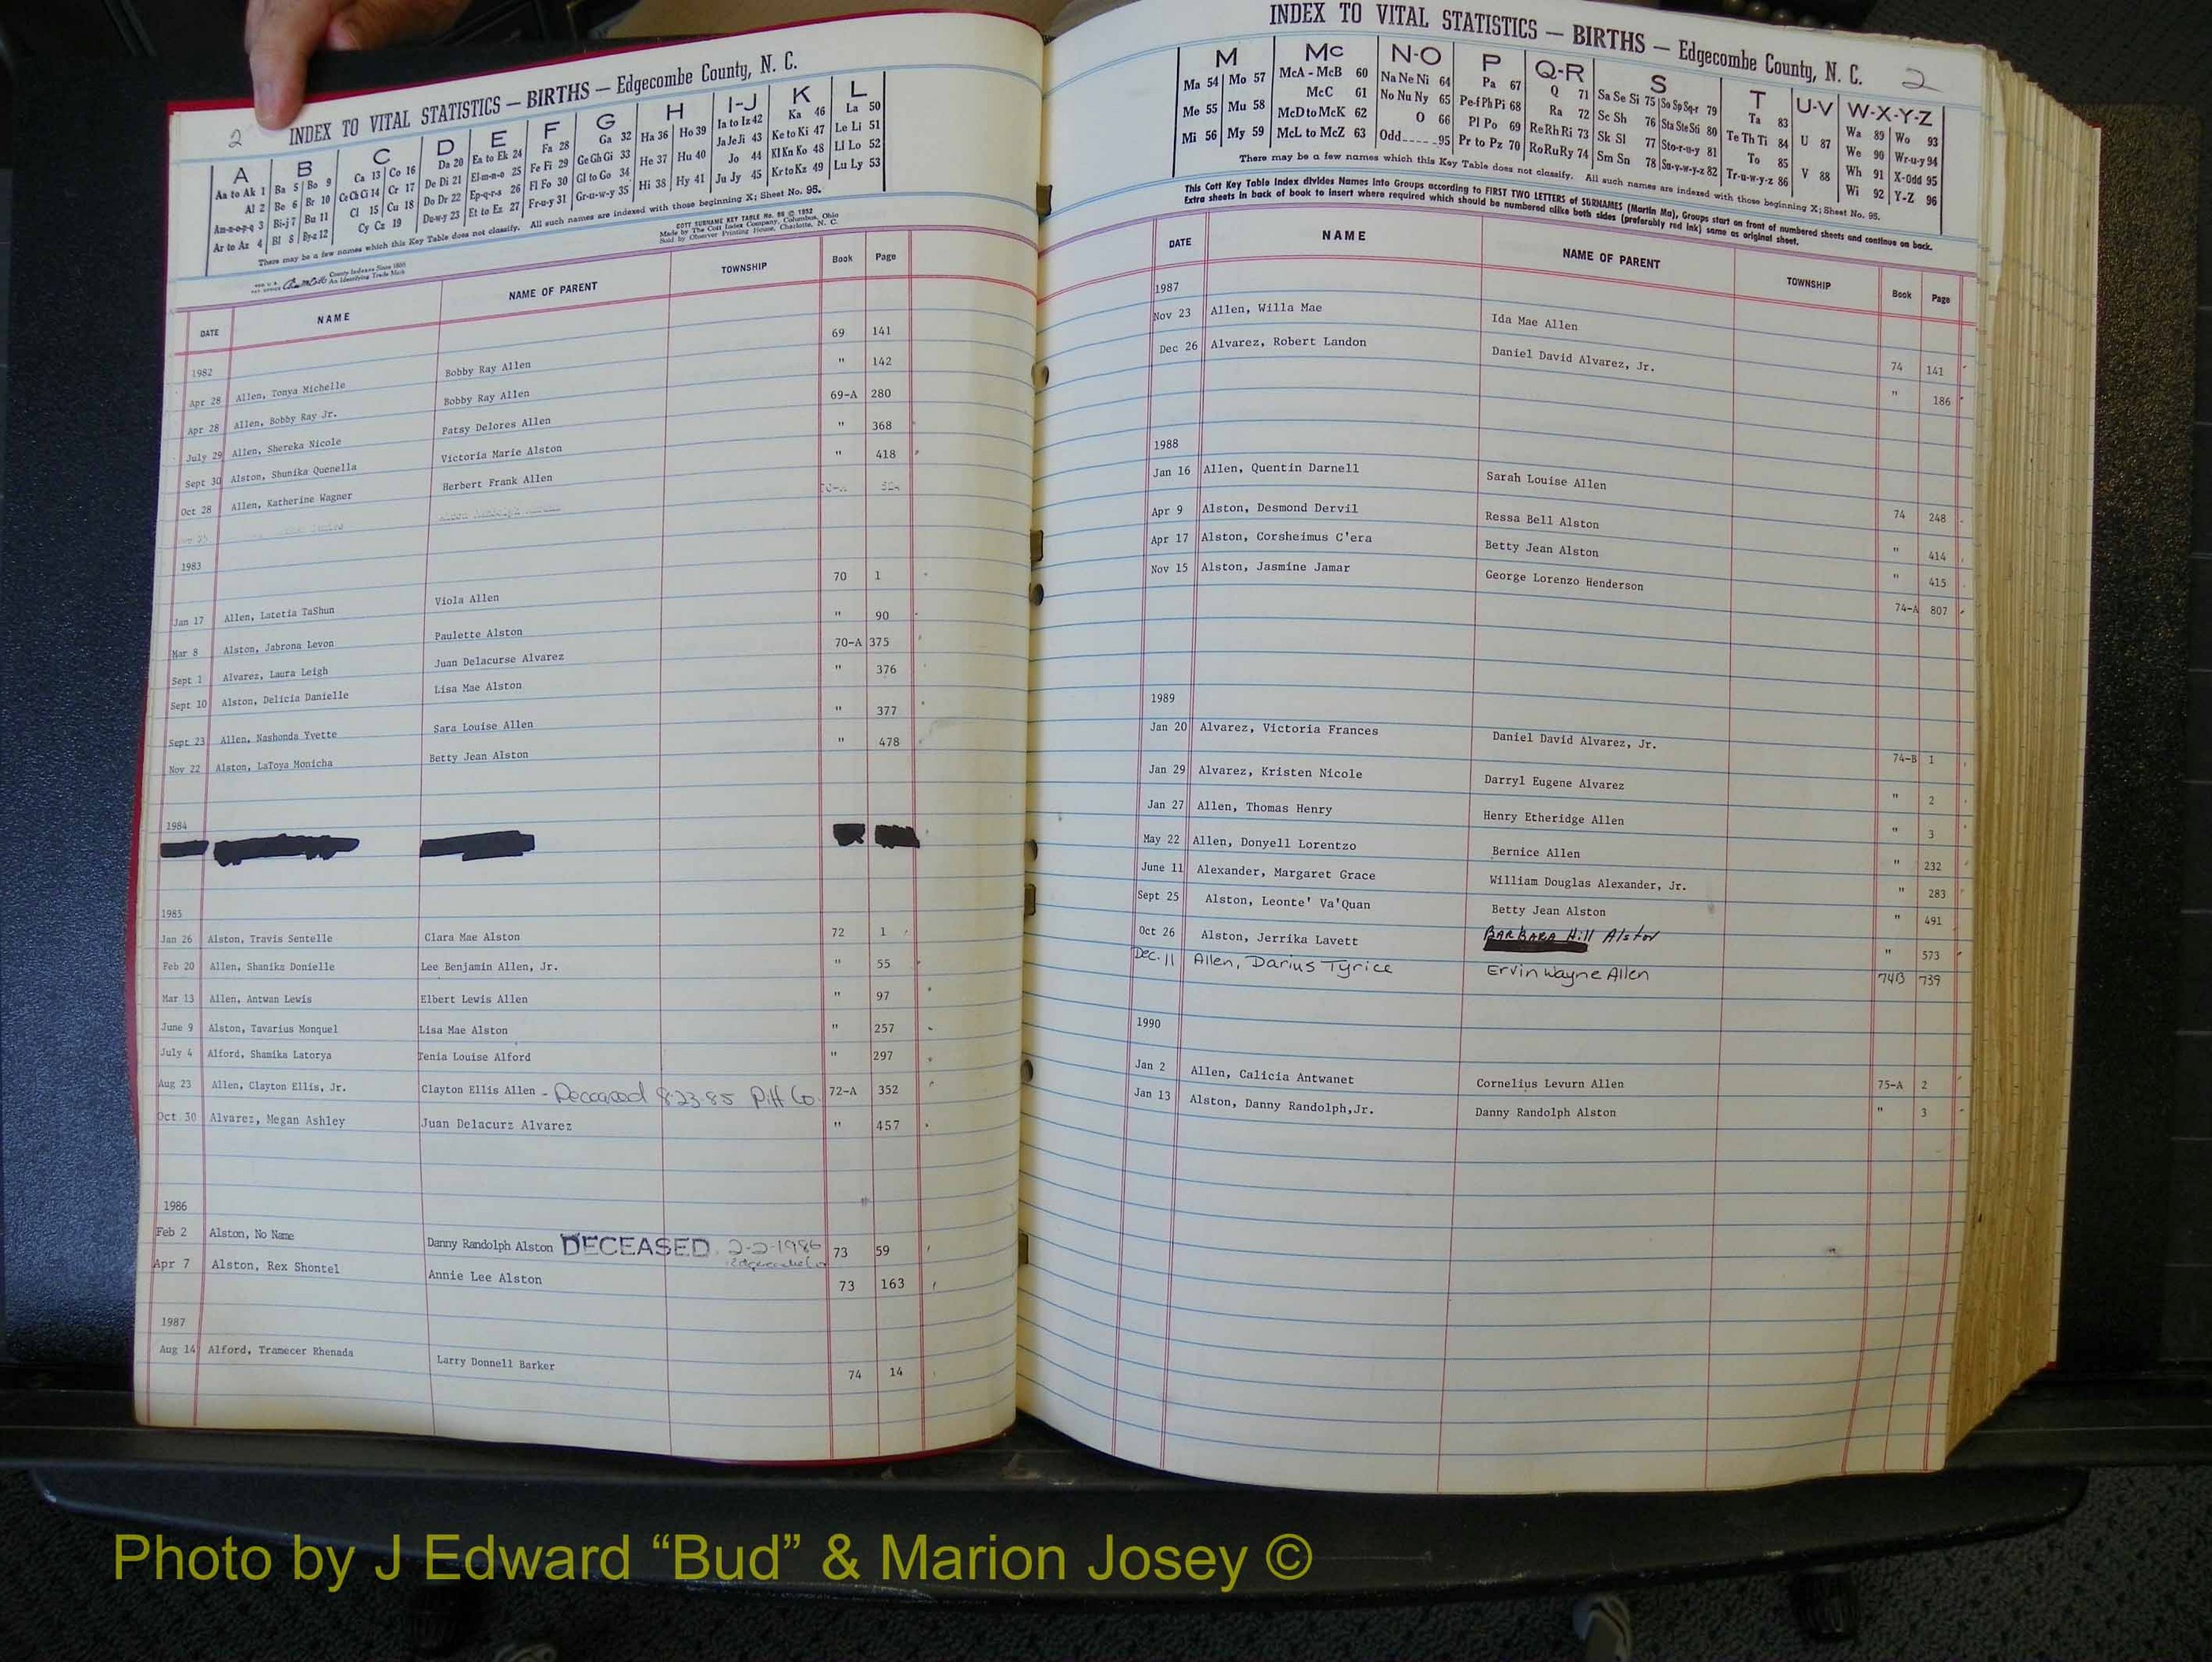 2
INDEX TO VITAL STATISTICS — BIRTHS — Edgecombe County, N. C.
A B C D E F G H I-J K L
Aa to Ak 1 Ba 5 Bo 9 Ca 13 Co 16 Da 20 Ea to Ek 24 Fa 28 Ga 32 Ha 36 Ho 39 Ia to Iz 42 Ka 46 La 50
Al 2 Be 6 Br 10 Ce Ch Ci 14 Cr 17 De Di 21 El-m-n-o 25 Fe Fi 29 Ge Gh Gi 33 He 37 Hu 40 Ja Je Ji 43 Ke to Ki 47 Le Li 51
Am-n-o-p-q 3 Bi-j 7 Bu 11 Cl 15 Cu 18 Do Dr 22 Ep-q-r-s 26 Fl Fo 30 Gl to Go 34 Hi 38 Hy 41 Jo 44 Kl Kn Ko 48 Ll Lo 52
Ar to Az 4 Bl 8 By-z 12 Cy Cz 19 Du-w-y 23 Et to Ez 27 Fr-u-y 31 Gr-u-w-y 35 Ju Jy 45 Kr to Kz 49 Lu Ly 53
There may be a few names which this Key Table does not classify. All such names are indexed with those beginning X; Sheet No. 95.
COTT SURNAME KEY TABLE No. 96 © 1952
Made by The Cott Index Company, Columbus, Ohio
Sold by Observer Printing House, Charlotte, N. C.
County Indexes Since 1888
An Identifying Trade Mark
DATE NAME NAME OF PARENT TOWNSHIP Book Page
1982
Apr 28 Allen, Tonya Michelle Bobby Ray Allen 69 141
Apr 28 Allen, Bobby Ray Jr. Bobby Ray Allen " 142
July 29 Allen, Shereka Nicole Patsy Delores Allen 69-A 280
Sept 30 Alston, Shunika Quenella Victoria Marie Alston " 368
Oct 28 Allen, Katherine Wagner Herbert Frank Allen " 418
1983
Jan 17 Allen, Latetia TaShun Viola Allen 70 1
Mar 8 Alston, Jabrona Levon Paulette Alston " 90
Sept 1 Alvarez, Laura Leigh Juan Delacurse Alvarez 70-A 375
Sept 10 Alston, Delicia Danielle Lisa Mae Alston " 376
Sept 23 Allen, Nashonda Yvette Sara Louise Allen " 377
Nov 22 Alston, LaToya Monicha Betty Jean Alston " 478
1984
1985
Jan 26 Alston, Travis Sentelle Clara Mae Alston 72 1
Feb 20 Allen, Shanika Donielle Lee Benjamin Allen, Jr. " 55
Mar 13 Allen, Antwan Lewis Elbert Lewis Allen " 97
June 9 Alston, Tavarius Monquel Lisa Mae Alston " 257
July 4 Alford, Shamika Latorya Tenia Louise Alford " 297
Aug 23 Allen, Clayton Ellis, Jr. Clayton Ellis Allen - Deceased 8-23-85 Pitt Co. 72-A 352
Oct 30 Alvarez, Megan Ashley Juan Delacurz Alvarez " 457
1986
Feb 2 Alston, No Name Danny Randolph Alston DECEASED 2-2-1986 73 59
Apr 7 Alston, Rex Shontel Annie Lee Alston 73 163
1987
Aug 14 Alford, Tramecer Rhenada Larry Donnell Barker 74 14
INDEX TO VITAL STATISTICS — BIRTHS — Edgecombe County, N. C. 2
M Mc N-O P Q-R S T U-V W-X-Y-Z
Ma 54 Mo 57 McA - McB 60 Na Ne Ni 64 Pa 67 Q 71 Sa Se Si 75 So Sp Sq-r 79 Ta 83 Wa 89 Wo 93
Me 55 Mu 58 McC 61 No Nu Ny 65 Pe-f Ph Pi 68 Ra 72 Sc Sh 76 Sta Ste Sti 80 Te Th Ti 84 U 87 We 90 Wr-u-y 94
Mi 56 My 59 McD to McK 62 O 66 Pl Po 69 Re Rh Ri 73 Sk Sl 77 Sto-r-u-y 81 To 85 Wh 91 X-Odd 95
McL to McZ 63 Odd 95 Pr to Pz 70 Ro Ru Ry 74 Sm Sn 78 Su-v-w-y-z 82 Tr-u-w-y-z 86 V 88 Wi 92 Y-Z 96
There may be a few names which this Key Table does not classify. All such names are indexed with those beginning X; Sheet No. 95.
This Cott Key Table Index divides Names into Groups according to FIRST TWO LETTERS of SURNAMES (Martin Ma), Groups start on front of numbered sheets and continue on back.
Extra sheets in back of book to insert where required which should be numbered alike both sides (preferably red ink) same as original sheet.
DATE NAME NAME OF PARENT TOWNSHIP Book Page
1987
Nov 23 Allen, Willa Mae Ida Mae Allen 74 141
Dec 26 Alvarez, Robert Landon Daniel David Alvarez, Jr. " 186
1988
Jan 16 Allen, Quentin Darnell Sarah Louise Allen 74 248
Apr 9 Alston, Desmond Dervil Ressa Bell Alston " 414
Apr 17 Alston, Corsheimus C'era Betty Jean Alston " 415
Nov 15 Alston, Jasmine Jamar George Lorenzo Henderson 74-A 807
1989
Jan 20 Alvarez, Victoria Frances Daniel David Alvarez, Jr. 74-B 1
Jan 29 Alvarez, Kristen Nicole Darryl Eugene Alvarez " 2
Jan 27 Allen, Thomas Henry Henry Etheridge Allen " 3
May 22 Allen, Donyell Lorentzo Bernice Allen " 232
June 11 Alexander, Margaret Grace William Douglas Alexander, Jr. " 283
Sept 25 Alston, Leonte' Va'Quan Betty Jean Alston " 491
Oct 26 Alston, Jerrika Lavett BARBARA Hill Alston " 573
Dec. 11 Allen, Darius Tyrice Ervin Wayne Allen 74B 739
1990
Jan 2 Allen, Calicia Antwanet Cornelius Levurn Allen 75-A 2
Jan 13 Alston, Danny Randolph,Jr. Danny Randolph Alston " 3
Photo by J Edward “Bud” & Marion Josey ©